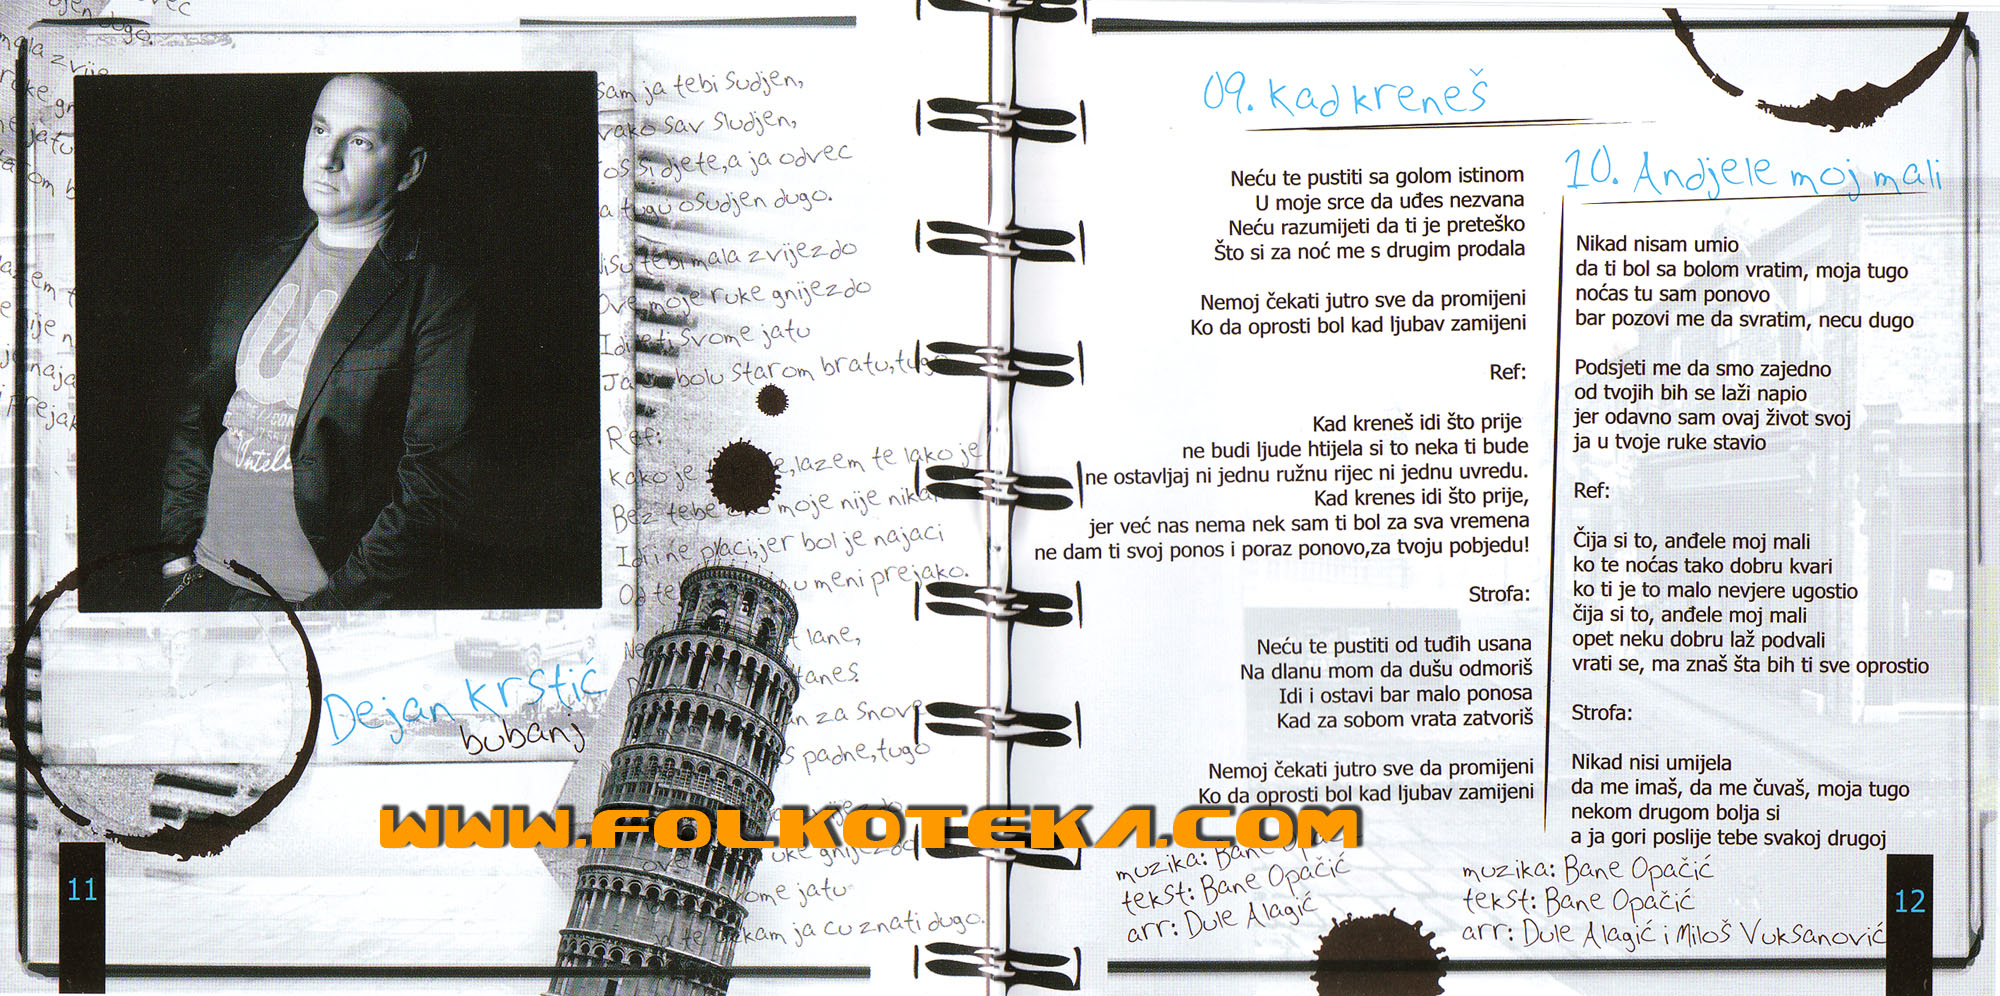 sam ja tebi sudjen,
vako sav sludjen,
si djete, a ja odvec
a tugu osudjen dugo.
tebi mala zvijezdo
Ove moje ruke gnijezdo
svome jatu
bolu starom bratu, tugo
Ref:
kako je lazem te lako je
Bez tebe moje nije
Idi ne placi, jer bol je najaci
u meni prejako.
lane,
za snove
padne, tugo
ome jatu
cekam ja cu znati dugo.
Dejan Krstić
bubanj
11
WWW.FOLKOTEKA.COM
09. Kad kreneš
Neću te pustiti sa golom istinom
U moje srce da uđes nezvana
Neću razumijeti da ti je preteško
Što si za noć me s drugim prodala
Nemoj čekati jutro sve da promijeni
Ko da oprosti bol kad ljubav zamijeni
Ref:
Kad kreneš idi što prije
ne budi ljude htijela si to neka ti bude
ne ostavljaj ni jednu ružnu rijec ni jednu uvredu.
Kad krenes idi što prije,
jer već nas nema nek sam ti bol za sva vremena
ne dam ti svoj ponos i poraz ponovo,za tvoju pobjedu!
Strofa:
Neću te pustiti od tuđih usana
Na dlanu mom da dušu odmoriš
Idi i ostavi bar malo ponosa
Kad za sobom vrata zatvoriš
Nemoj čekati jutro sve da promijeni
Ko da oprosti bol kad ljubav zamijeni
muzika: Bane
tekst: Bane Opačić
arr: Dule Alagić
10. Andjele moj mali
Nikad nisam umio
da ti bol sa bolom vratim, moja tugo
noćas tu sam ponovo
bar pozovi me da svratim, necu dugo
Podsjeti me da smo zajedno
od tvojih bih se laži napio
jer odavno sam ovaj život svoj
ja u tvoje ruke stavio
Ref:
Čija si to, anđele moj mali
ko te noćas tako dobru kvari
ko ti je to malo nevjere ugostio
čija si to, anđele moj mali
opet neku dobru laž podvali
vrati se, ma znaš šta bih ti sve oprostio
Strofa:
Nikad nisi umijela
da me imaš, da me čuvaš, moja tugo
nekom drugom bolja si
a ja gori poslije tebe svakoj drugoj
muzika: Bane Opačić
tekst: Bane Opačić
arr: Dule Alagić i Miloš Vuksanović
12